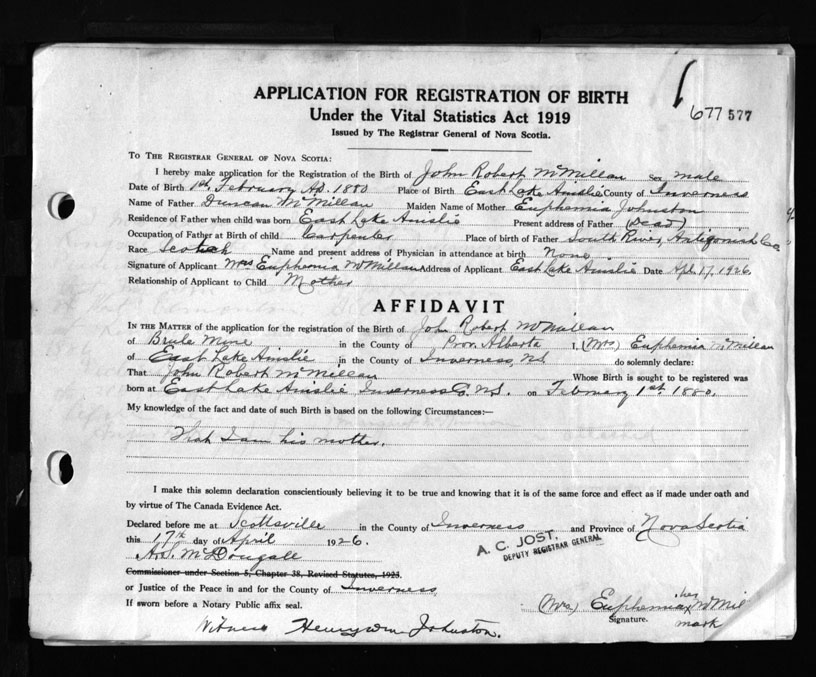 APPLICATION FOR REGISTRATION OF BIRTH
677 577
Under the Vital Statistics Act 1919
Issued by The Registrar General of Nova Scotia.
To The Registrar General of Nova Scotia:
I hereby make application for the Registration of the Birth of John Robert McMillan sex male
Date of Birth 1st, February AD. 1880 Place of Birth East Lake Ainslie County of Inverness
Name of Father Duncan McMillan Maiden Name of Mother Euphemia Johnston
Residence of Father when child was born East Lake Ainslie Present address of Father (Dead)
Occupation of Father at Birth of child Carpenter Place of birth of Father South River, Antigonish Co
Race Scotch Name and present address of Physician in attendance at birth None
Signature of Applicant Mrs Euphemia McMillan Address of Applicant East Lake Ainslie Date Apl. 17, 1926
Relationship of Applicant to Child Mother
AFFIDAVIT
In the Matter of the application for the registration of the Birth of John Robert McMillan
of Brule Mine in the County of Prov. Alberta I, (Mrs) Euphemia McMillan
of East Lake Ainslie in the County of Inverness, N.S. do solemnly declare:
That John Robert McMillan Whose Birth is sought to be registered was
born at East Lake Ainslie Inverness Co. N.S. on February 1st. 1880.
My knowledge of the fact and date of such Birth is based on the following Circumstances:—
That I am his mother.
I make this solemn declaration conscientiously believing it to be true and knowing that it is of the same force and effect as if made under oath and
by virtue of The Canada Evidence Act.
Declared before me at Scottsville in the County of Inverness and Province of Nova Scotia
this 17th day of April 1926.
A. C. JOST,
DEPUTY REGISTRAR GENERAL
McDougall
Commissioner under Section 5, Chapter 38, Revised Statutes, 1923.
or Justice of the Peace in and for the County of Inverness
If sworn before a Notary Public affix seal.
her
(Mrs) Euphemia X McMil
Signature. mark
Witness Henry Wm Johnston.